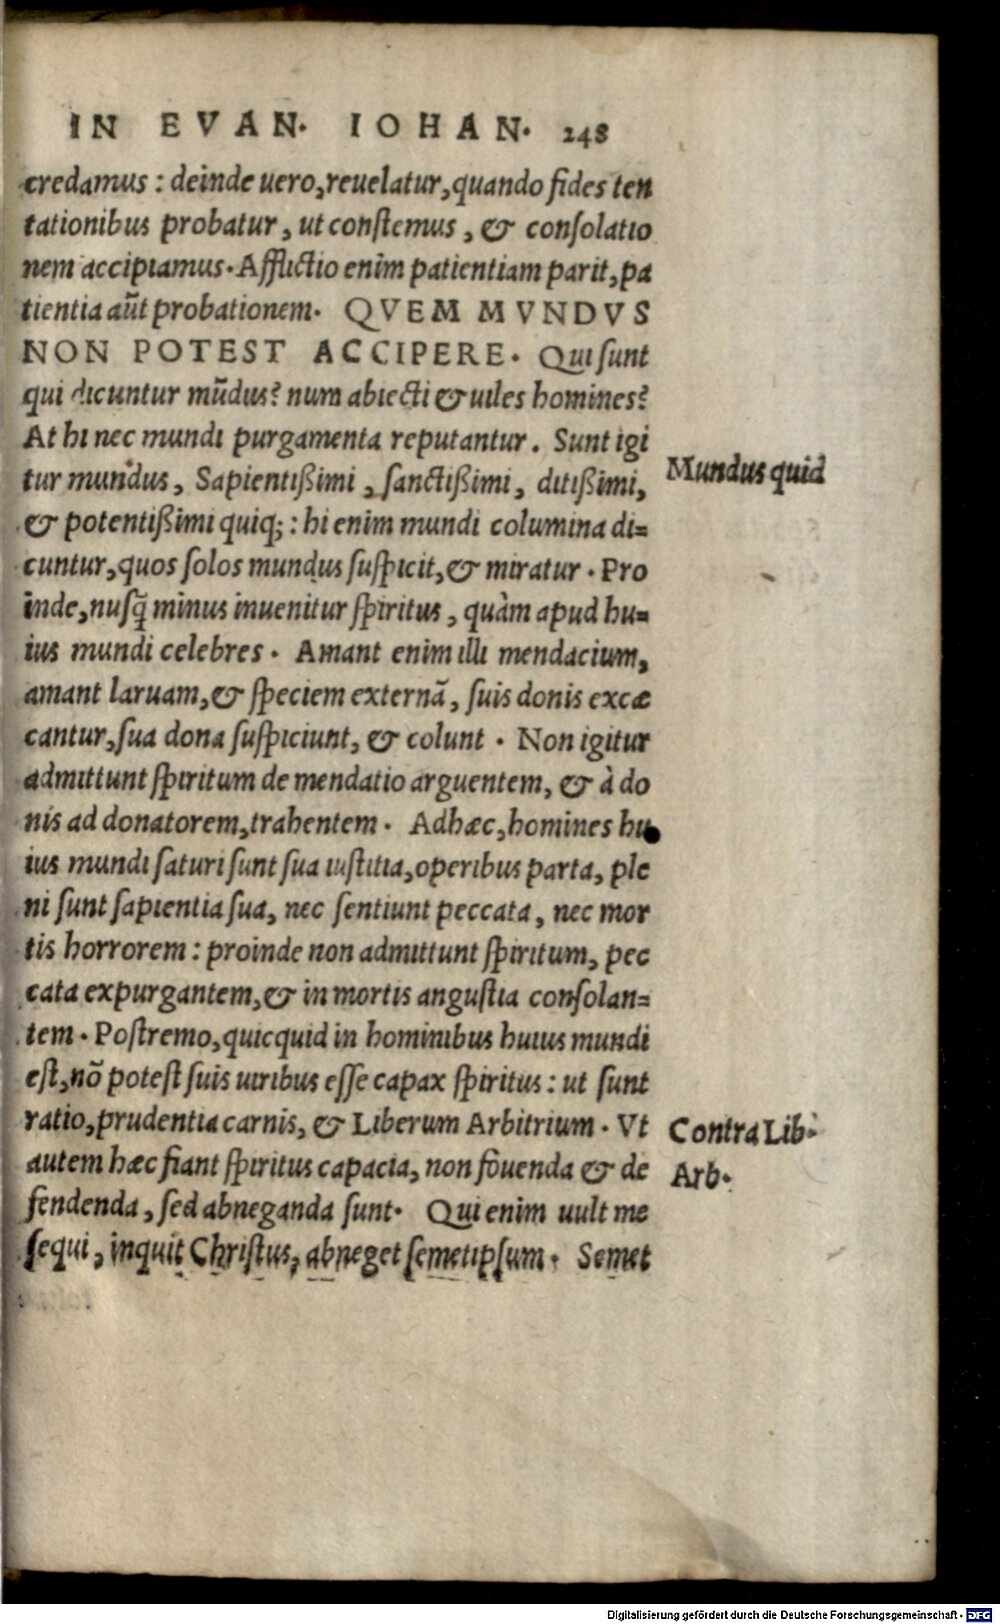 IN EVAN. IOHAN. 248
credamus: deinde uero, reuelatur, quando fides ten
tationibus probatur, ut constemus, & consolatio
nem accipiamus. Afflictio enim patientiam parit, pa
tientia aũt probationem. QVEM MVNDVS
NON POTEST ACCIPERE. Qui sunt
qui dicuntur mũdus? num abiecti & uiles homines?
At hi nec mundi purgamenta reputantur. Sunt igi
tur mundus, Sapientißimi, sanctißimi, ditißimi,
Mundus quid
& potentißimi quiq;: hi enim mundi columina di=
cuntur, quos solos mundus suspicit, & miratur. Pro
inde, nusq̃ minus inuenitur spiritus, quàm apud hu=
ius mundi celebres. Amant enim illi mendacium,
amant laruam, & speciem externã, suis donis excæ
cantur, sua dona suspiciunt, & colunt. Non igitur
admittunt spiritum de mendatio arguentem, & à do
nis ad donatorem, trahentem. Adhæc, homines hu
ius mundi saturi sunt sua iustitia, operibus parta, ple
ni sunt sapientia sua, nec sentiunt peccata, nec mor
tis horrorem: proinde non admittunt spiritum, pec
cata expurgantem, & in mortis angustia consolan=
tem. Postremo, quicquid in hominibus huius mundi
est, nõ potest suis uiribus esse capax spiritus: ut sunt
ratio, prudentia carnis, & Liberum Arbitrium. Vt
Contra Lib.
autem hæc fiant spiritus capacia, non fouenda & de
Arb.
fendenda, sed abneganda sunt. Qui enim uult me
sequi, inquit Christus, abneget semetipsum. Semet
Digitalisierung gefördert durch die Deutsche Forschungsgemeinschaft - DFG